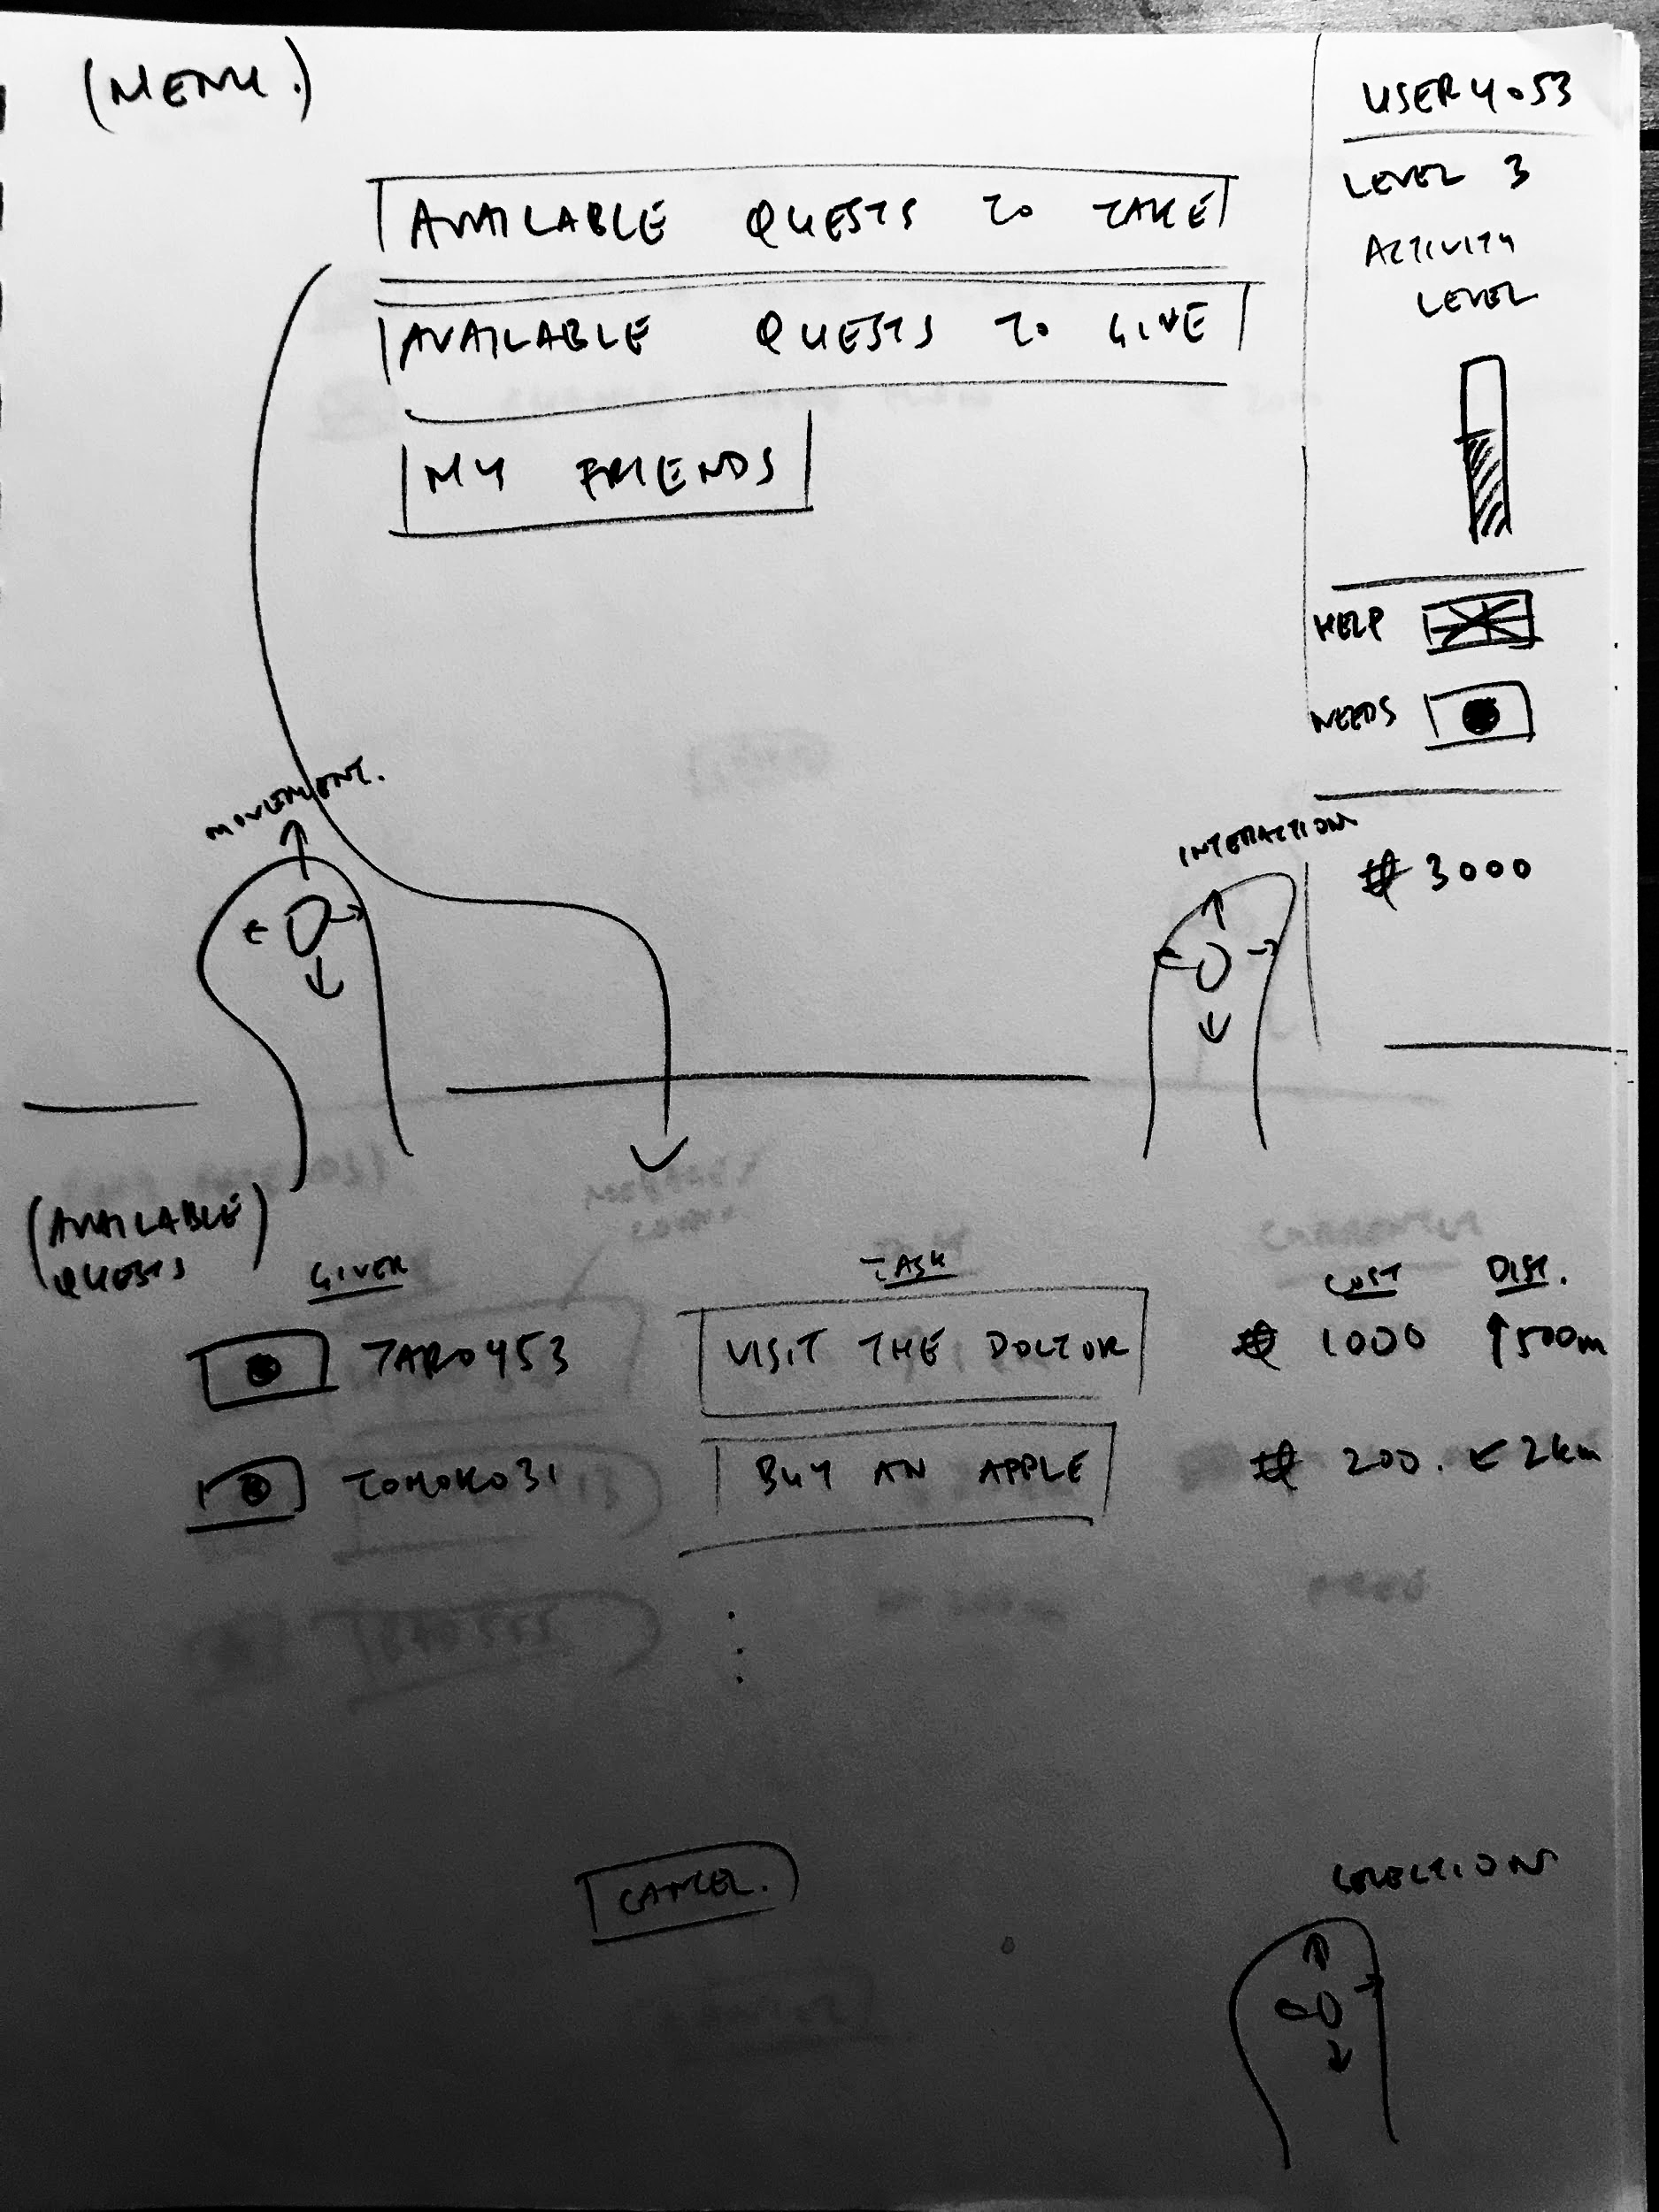 (MENU.)
AVAILABLE QUESTS TO TAKE
AVAILABLE QUESTS TO GIVE
MY FRIENDS
USER4053
LEVEL 3
ACTIVITY
LEVEL
HELP
NEEDS
3000
MOVEMENT.
INTERACTION
(AVAILABLE
QUESTS)
GIVER TASK COST DIST.
TARO453 VISIT THE DOCTOR 1000 ↑500m
TOMOKO31 BUY AN APPLE 200. ← 2km
CANCEL.
SELECTION